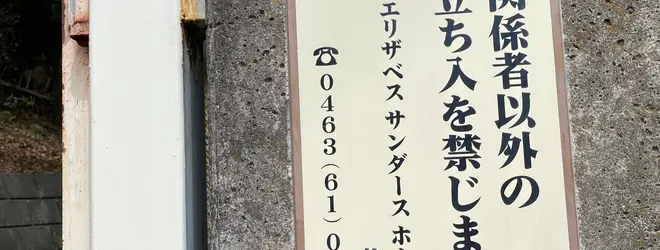 関係者以外の
立ち入を禁じま
エリザベス サンダース ホ
☎0463(61)0